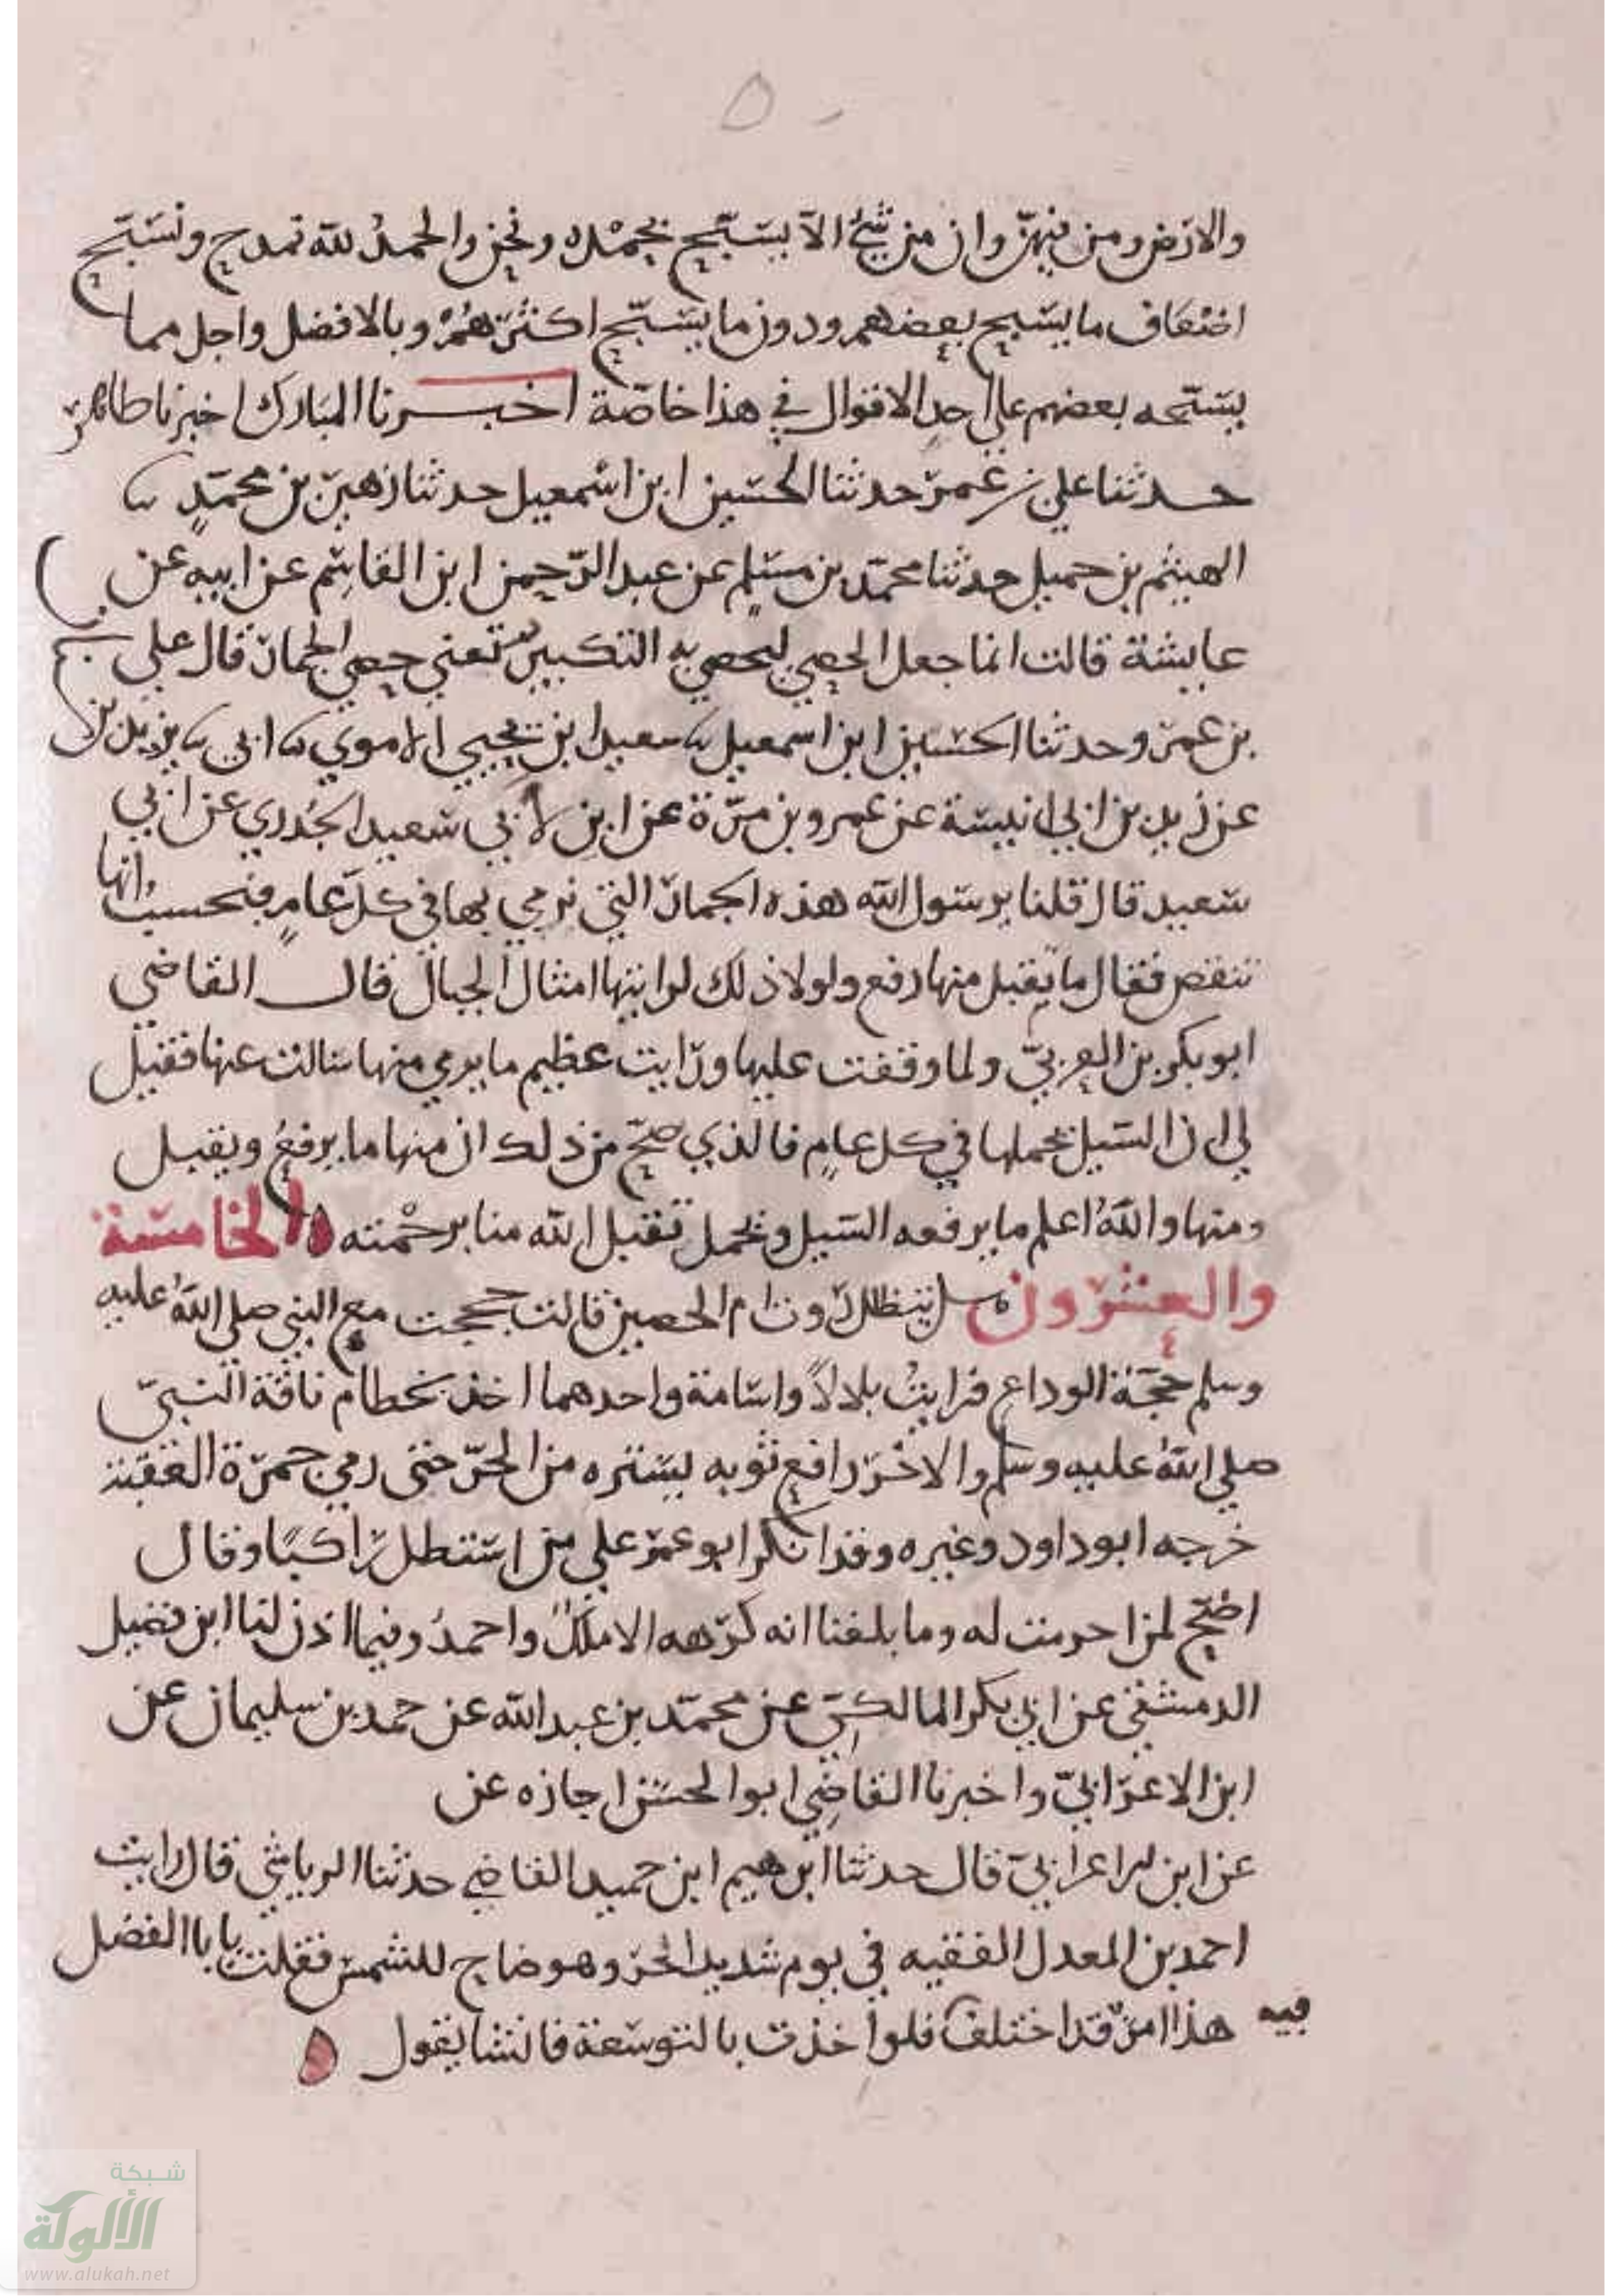 ٥٠
والارض ومن فيهن وان من شئ الا يسبح بحمده ونحن والحمد لله نمدح ونسبح
اضعاف ما يسبح بعضهم ودون ما يسبح اكثرهم وبالافضل واجل مما
يسبحه بعضهم على احد الاقوال في هذا خاصة اخبرنا المبارك اخبرنا طاهر
حدثنا علي بن عمر حدثنا الحسين ابن اسمعيل حدثنا زهير بن محمد
الهيثم بن جميل حدثنا محمد بن مسلم عن عبد الرحمن ابن القاسم عن ابيه عن
عايشة قالت انما جعل الحصي ليحصي به التكبير تعني حصي الجمار قال علي
بن عمر وحدثنا الحسين ابن اسمعيل سعيد ابن يحيي الاموي ابي يزيد بن
عن زيد بن ابي انيسة عن عمرو بن مرة عن ابن لابي سعيد الخدري عن ابي
سعيد قال قلنا يرسول الله هذه الجمار التي نرمي بها في كل عام فنحسب انها
تنقص فقال ما يقبل منها رفع ولولا ذلك لرايتها امثال الجبال قال القاضي
ابو بكر بن العربي ولما وقفت عليها ورايت عظيم ما يرمي منها سالت عنها فقيل
لي ان السيل يحملها في كل عام فالذي صح من ذلك ان منها ما يرفع ويقبل
ومنها والله اعلم ما يرفعه السيل ويحمل تقبل الله منا برحمته ه الخامسة
والعشرون ه هل يتظلل روت ام الحصين قالت حججت مع النبي صلي الله عليه
وسلم حجة الوداع فرايت بلالا واسامة واحدهما اخذ بخطام ناقة النبي
صلي الله عليه وسلم والاخر رافع ثوبه يستره من الحر حتى رمي جمرة العقبة
خرجه ابو داود وغيره وقد انكر ابو عمر علي من استظل راكبا وقال
اضح لمن احرمت له وما بلغنا انه كرهه الا ملك واحمد وفيما اذن لنا ابن فضيل
الدمشقي عن ابي بكر المالكي عن محمد بن عبد الله عن حمد بن سليمان عن
ابن الاعرابي واخبرنا القاضي ابو الحسن اجازه عن
عن ابن الاعرابي قال حدثنا ابرهيم ابن حميد القاضي حدثنا الرياشي قال رايت
احمد بن المعدل الفقيه في يوم شديد الحر وهو ضاح للشمس فقلت يابا الفضل
هذا امر قد اختلف فيه فلو اخذت بالتوسعة فانشا يقول ه
شبكة
الألوكة
www.alukah.net